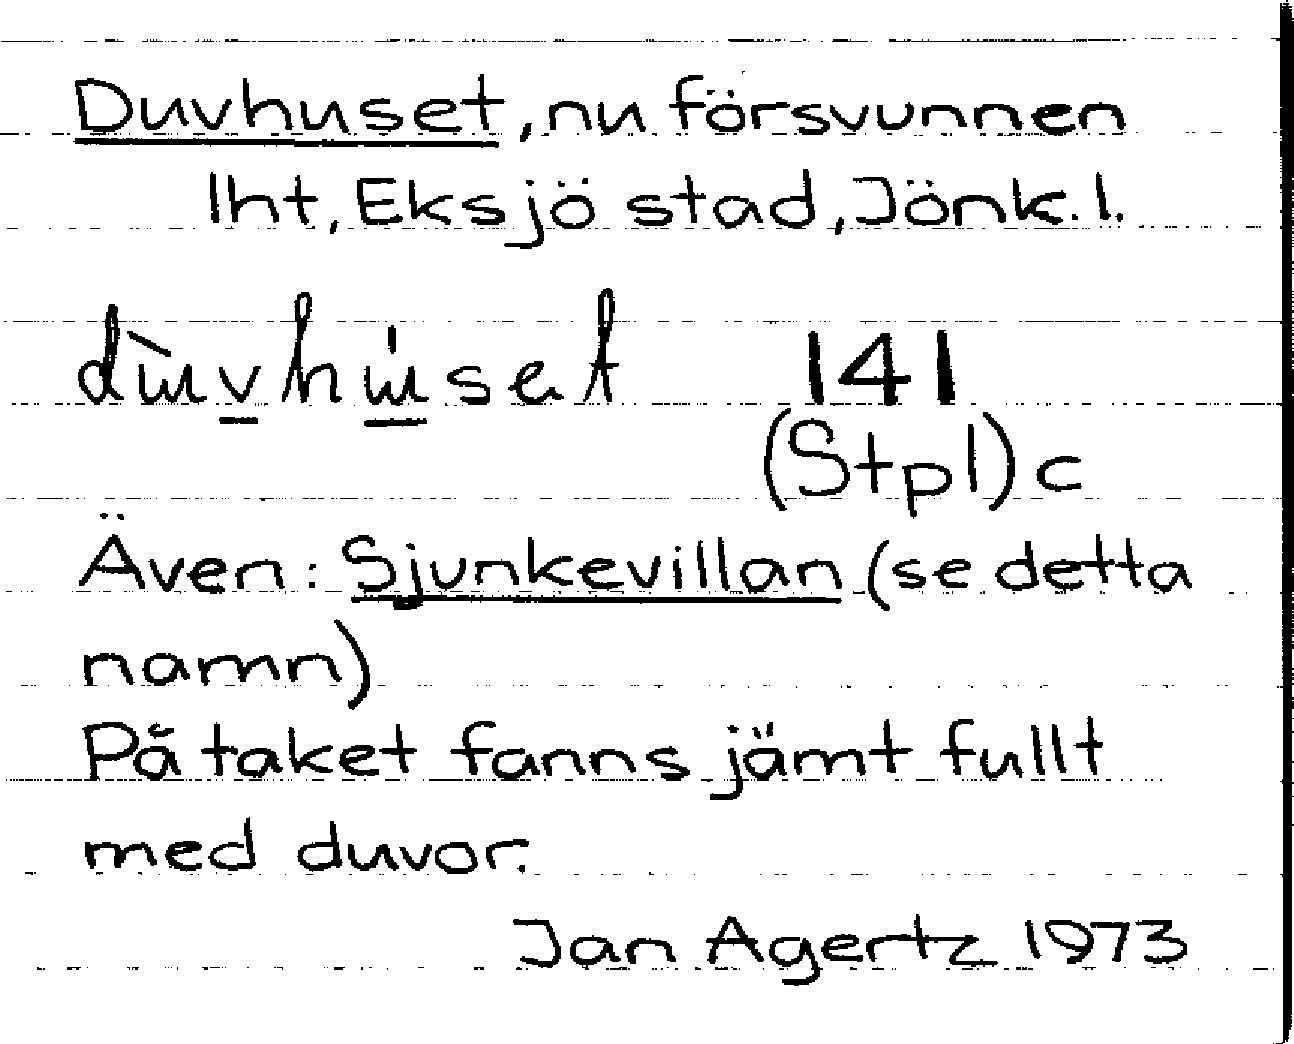 Duvhuset, nu försvunnen
lht, Eksjö stad, Jönk. l.
dùvhúset 141
(Stpl) c
Även: Sjunkevillan (se detta
namn)
På taket fanns jämt fullt
med duvor.
Jan Agertz 1973